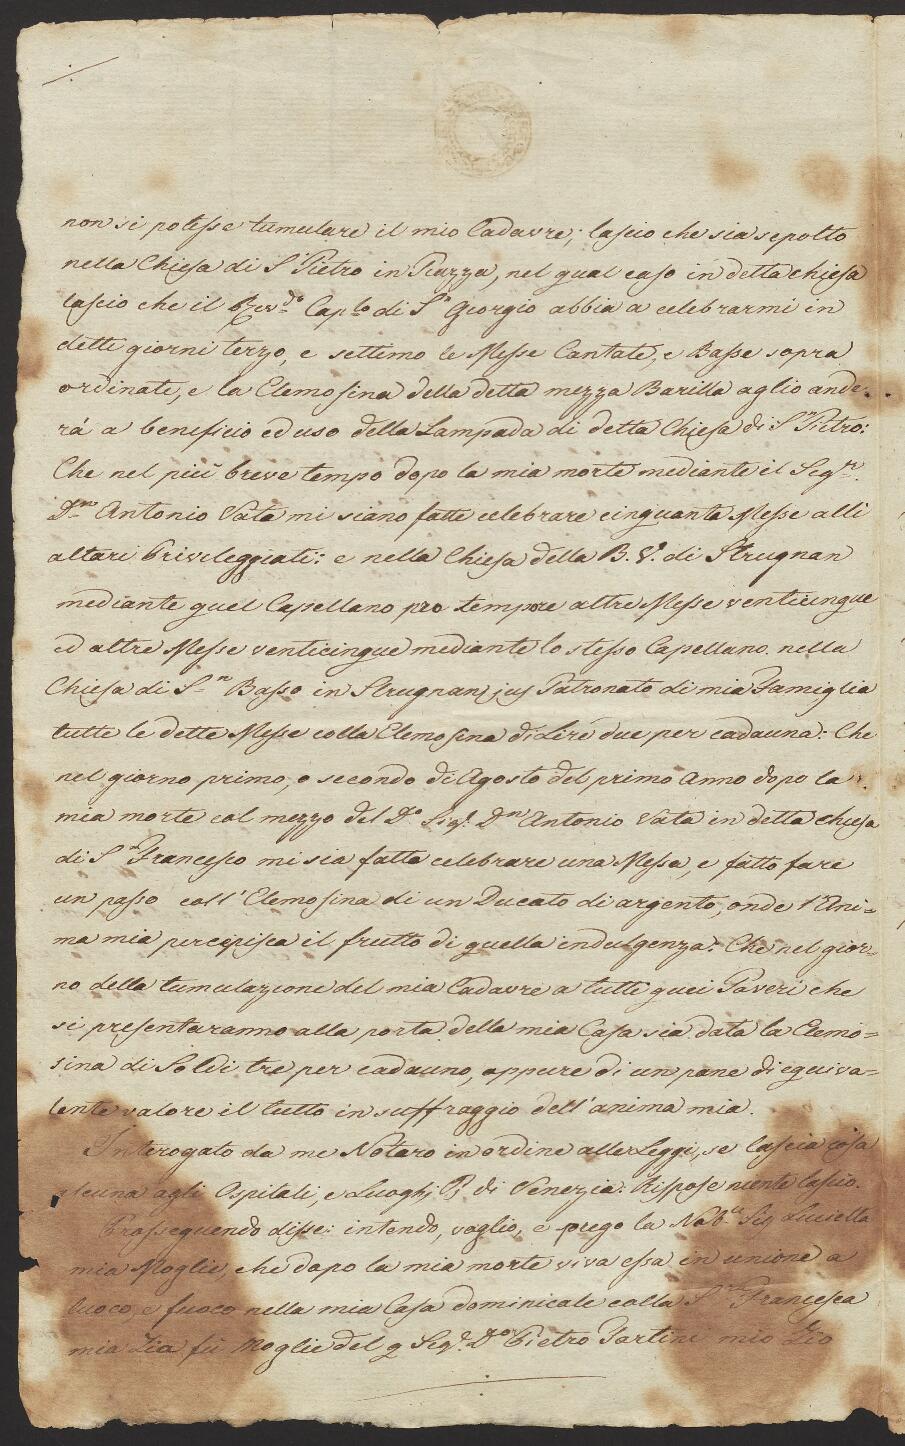 non si potesse tumulare il mio Cadavre; lascio che sia sepolto
nella Chiesa di S.n Pietro in Piazza, nel qual caso in detta chiesa
lascio che il Rev.do Cap.lo di S.n Giorgio abbia a celebrarmi in
detti giorni terzo, e settimo le Messe Cantate, e Basse sopra
ordinate, e la Elemosina della detta mezza Barilla aglio ande-
rá a beneficio ed uso della Lampada di detta Chiesa di S.n Pietro:
Che nel più breve tempo dopo la mia morte mediante il Seg.r
D.n Antonio Vata mi siano fatte celebrare cinquanta Messe alli
altari Privileggiati: e nella Chiesa della B. V. di Strugnan
mediante quel Capellano pro tempore altre Messe venticinque
ed altre Messe venticinque mediante lo stesso Capellano nella
Chiesa di S.n Basso in Strugnan, jus Patronato di mia Famiglia
tutte le dette Messe colla Elemosina di Lire due per cadauna: Che
nel giorno primo, o secondo di Agosto del primo Anno dopo la
mia morte col mezzo del D.o Sig.r D.n Antonio Vata in detta chiesa
di S.n Francesco mi sia fatta celebrare una Messa, e fatto fare
un passo coll'Elemosina di un Ducato di argento, onde l'Ani=
ma mia percepisca il frutto di quella indulgenza: Che nel gior=
no della tumulazione del mia Cadavre a tutti quei Poveri che
si presentaranno alla porta della mia Casa sia data la Elemo=
sina di Soldi tre per cadauno, oppure di un pane di equiva=
lente valore il tutto in suffraggio dell'anima mia.
Interogato da me Notaro in ordine alle Leggi, se lascia cosa
alcuna agli Ospitali, e Luoghi P. di Venezia: Rispose niente lascio.
Prosseguendo disse: intendo, voglio, e prego la Nob.e Sig. Luciella
mia Moglie, che dopo la mia morte viva essa in unione a
luoco, e fuoco nella mia Casa dominicale colla S.ra Francesca
mia Zia fù Moglie del q Seg.r D.r Pietro Tartini mio Zio